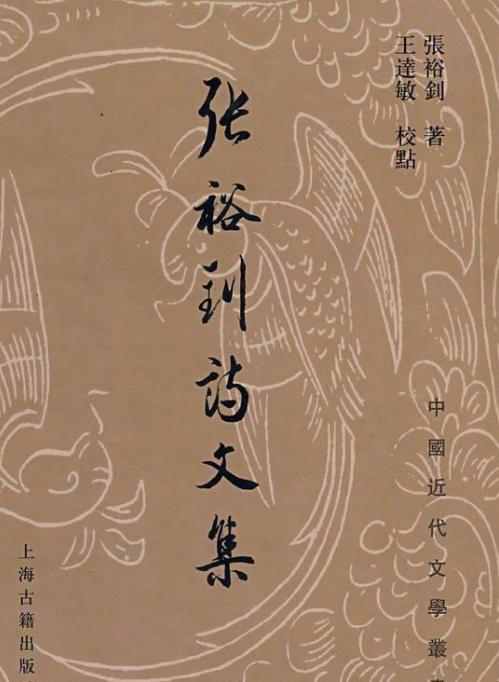 張裕釗 著
王達敏 校點
中國近代文學叢
张裕钊诗文集
上海古籍出版